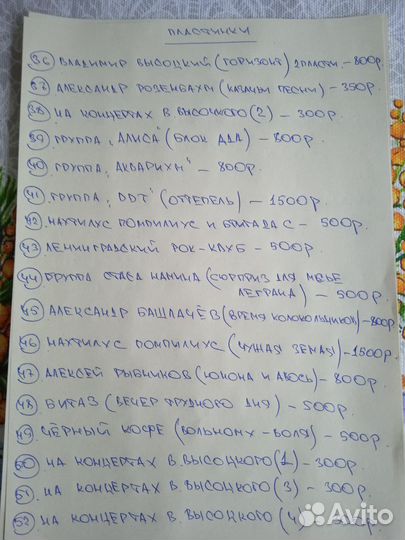 ПЛАСТИНКИ
36 ВЛАДИМИР ВЫСОЦКИЙ (ГОРИЗОНТ) 2 ПЛАСТИН. – 800р.
37 АЛЕКСАНДР РОЗЕНБАУМ (КАЗАЧЬИ ПЕСНИ) – 350р.
38 НА КОНЦЕРТАХ В. ВЫСОЦКОГО (2) – 300р.
39 ГРУППА „АЛИСА" (БЛОК АДА) – 800р.
40 ГРУППА „АКВАРИУМ" – 800р.
41 ГРУППА „DDT" (ОТТЕПЕЛЬ) – 1500р
42 НАУТИЛУС ПОМПИЛИУС И БРИГАДА С – 500р.
43 ЛЕНИНГРАДСКИЙ РОК-КЛУБ – 500р.
44 ГРУППА СТАСА НАМИНА (СЮРПРИЗ ДЛЯ МСЬЕ
ЛЕГРАНА) – 500р.
45 АЛЕКСАНДР БАШЛАЧЁВ (ВРЕМЯ КОЛОКОЛЬЧИКОВ) – 800р
46 НАУТИЛУС ПОМПИЛИУС (ЧУЖАЯ ЗЕМЛЯ) – 1500р.
47 АЛЕКСЕЙ РЫБНИКОВ (ЮНОНА И АВОСЬ) – 800р.
48 БИТЛЗ (ВЕЧЕР ТРУДНОГО ДНЯ) – 500р.
49 ЧЁРНЫЙ КОФЕ (ВОЛЬНОМУ – ВОЛЯ) – 500р.
50 НА КОНЦЕРТАХ В. ВЫСОЦКОГО (1) – 300р.
51 НА КОНЦЕРТАХ В. ВЫСОЦКОГО (3) – 300р.
52 НА КОНЦЕРТАХ В. ВЫСОЦКОГО (4)
Avito